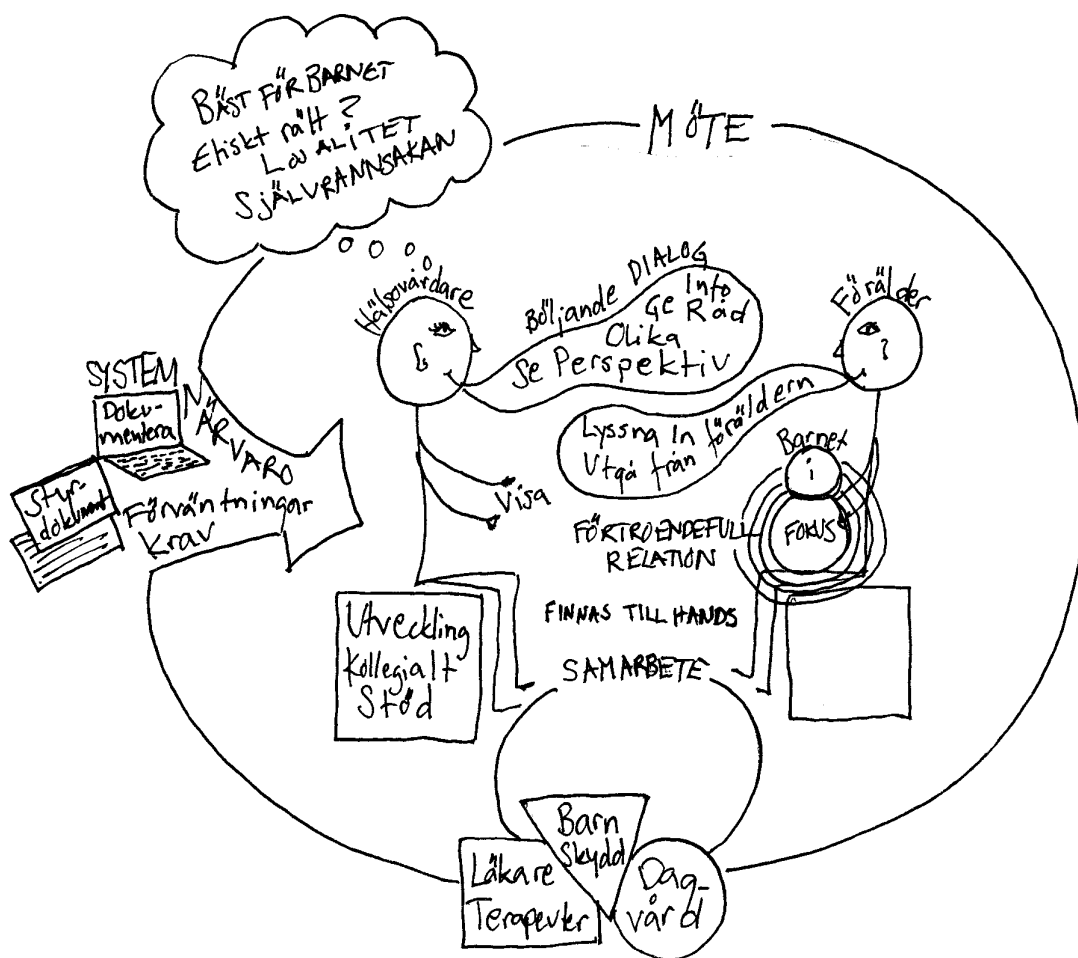 BÄST FÖR BARNET
Etiskt rätt?
LOJALITET
SJÄLVRANNSAKAN
MÖTE
Hälsovårdare
Böljande DIALOG
Ge Info
Råd
Olika
Se Perspektiv
Förälder
Lyssna In föräldern
Utgå från
Barnet
i
FOKUS
SYSTEM
Doku-
mentera
Styr-
dokument
NÄRVARO
Förväntningar
Krav
Visa
FÖRTROENDEFULL
RELATION
FINNAS TILL HANDS
SAMARBETE
Utveckling
Kollegialt
Stöd
Barn
Skydd
Läkare
Terapeuter
Dag-
vård